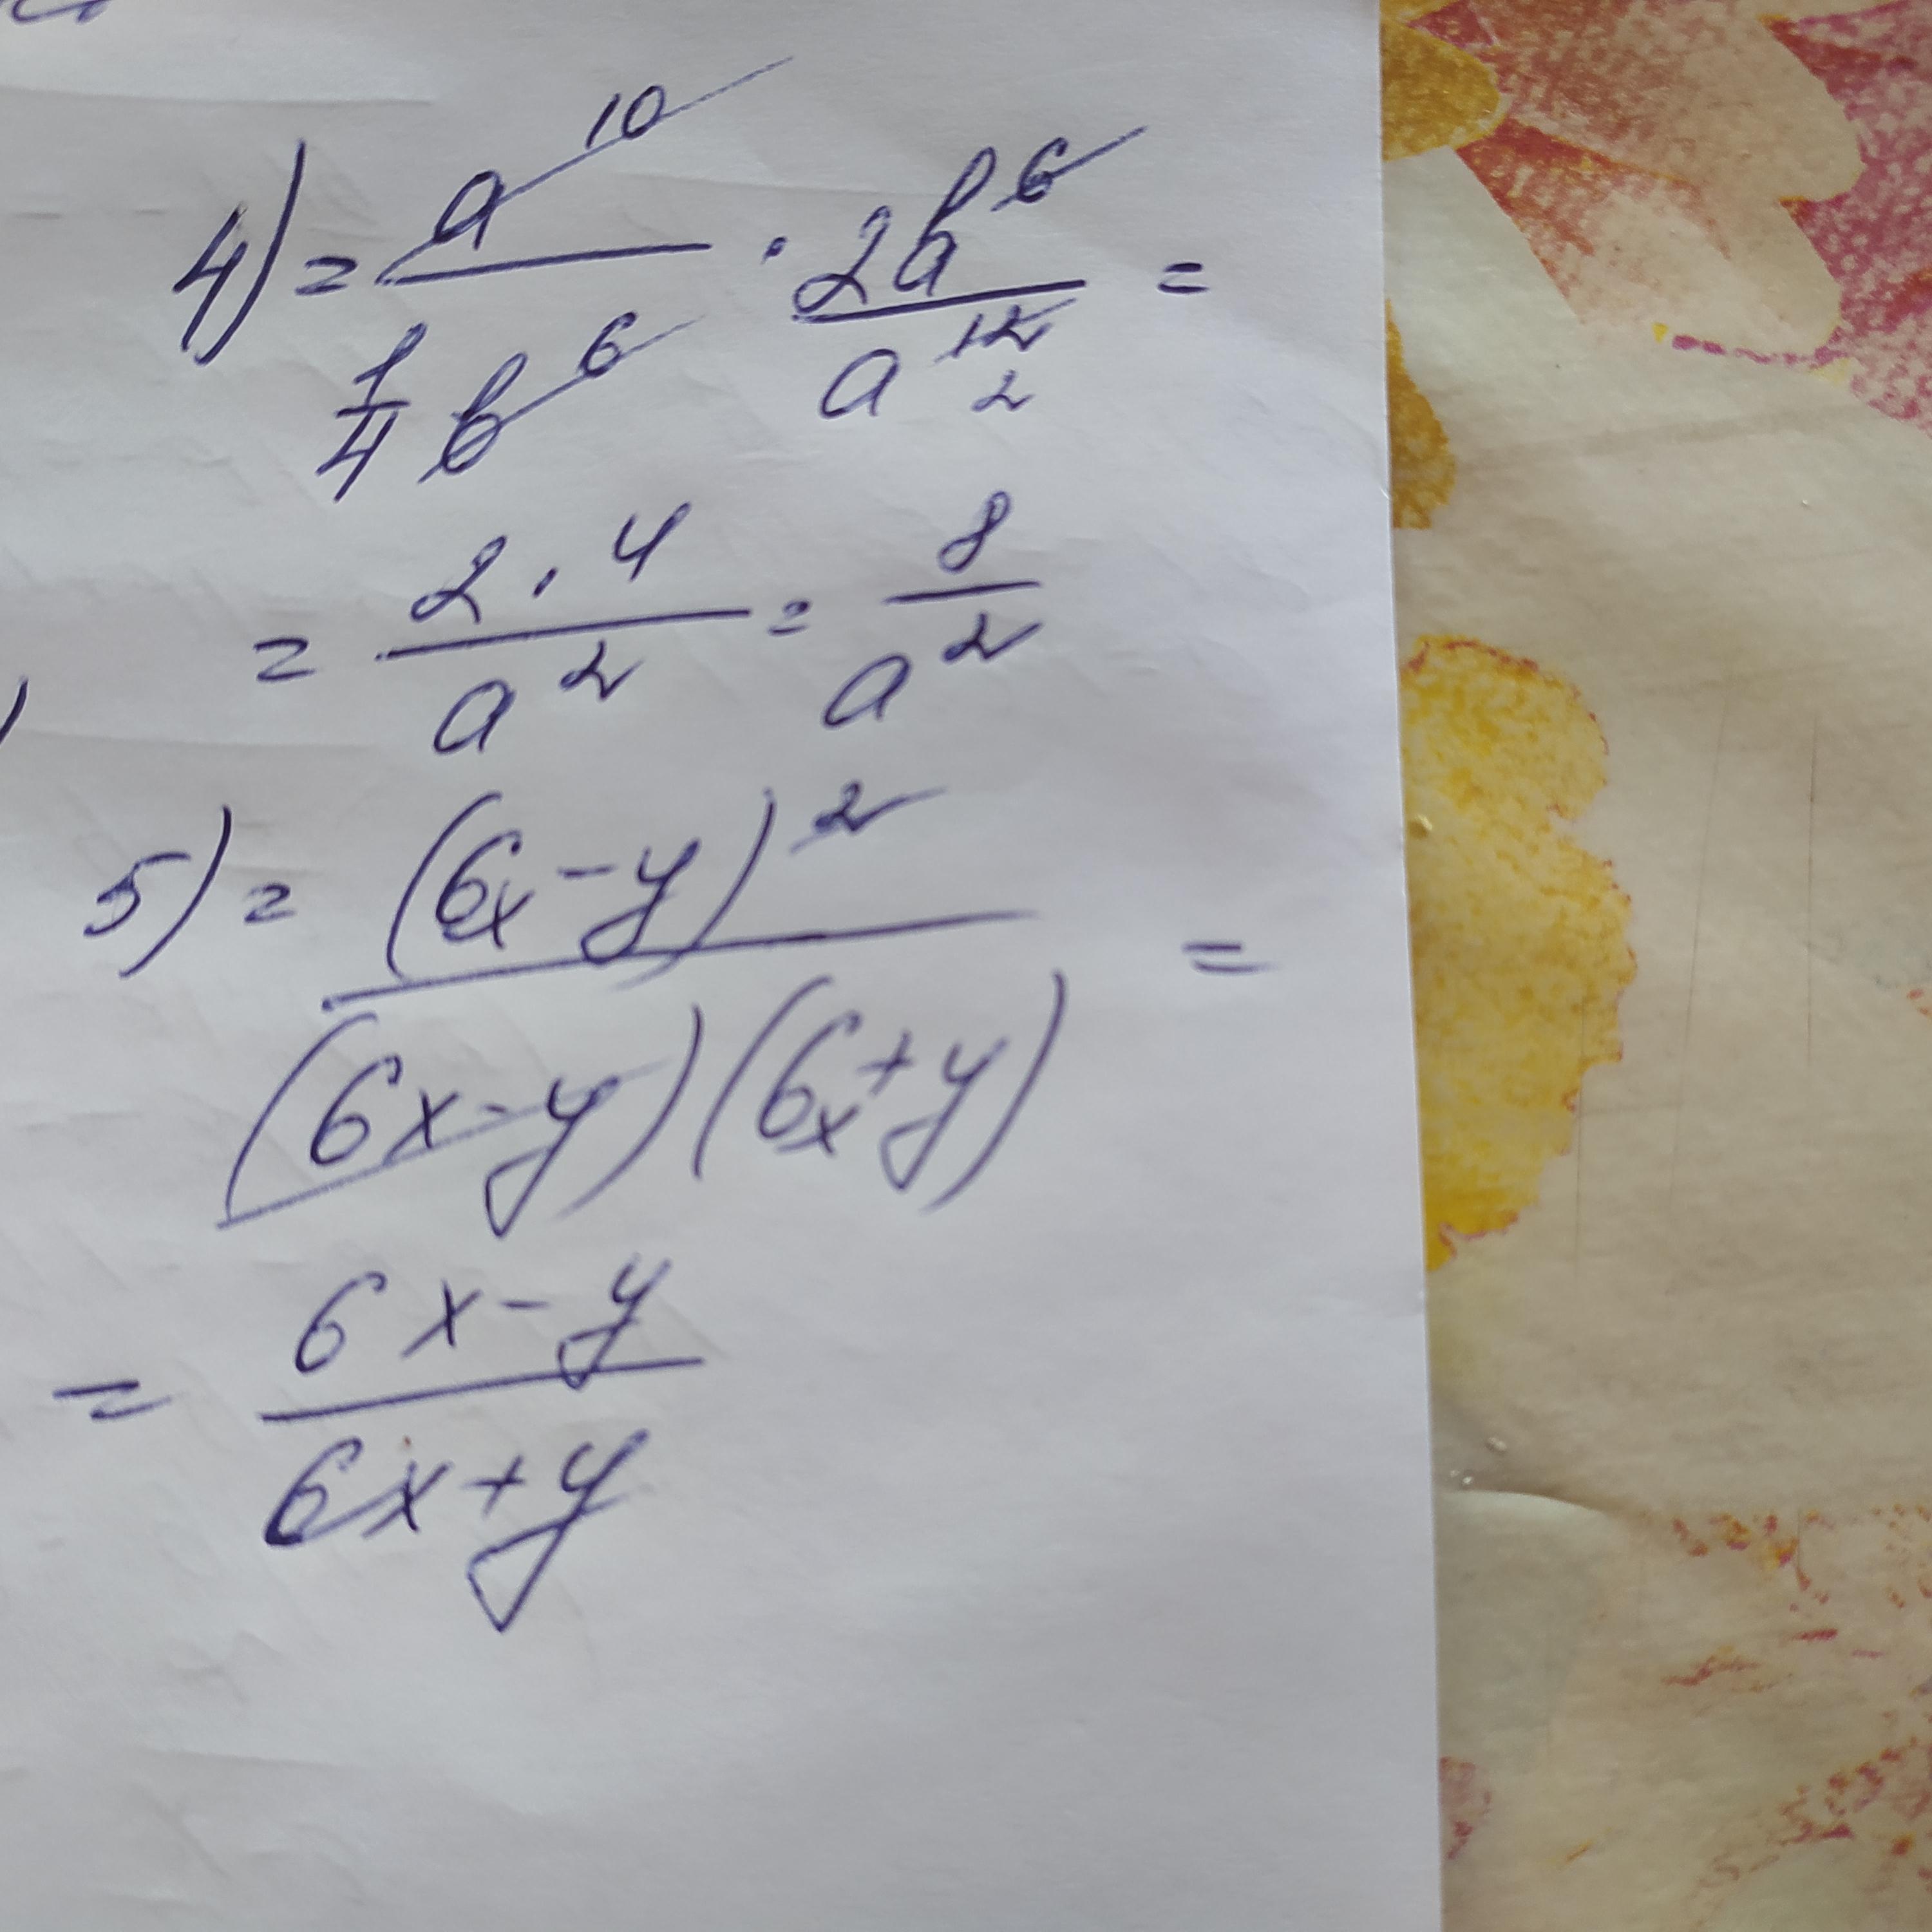 4) = a^10 / (1/4 b^6) · 2b^6 / a^12 =
2
= 2 · 4 / a^2 = 8 / a^2
5) = (6x - y)^2 / ((6x - y)(6x + y)) =
= (6x - y) / (6x + y)